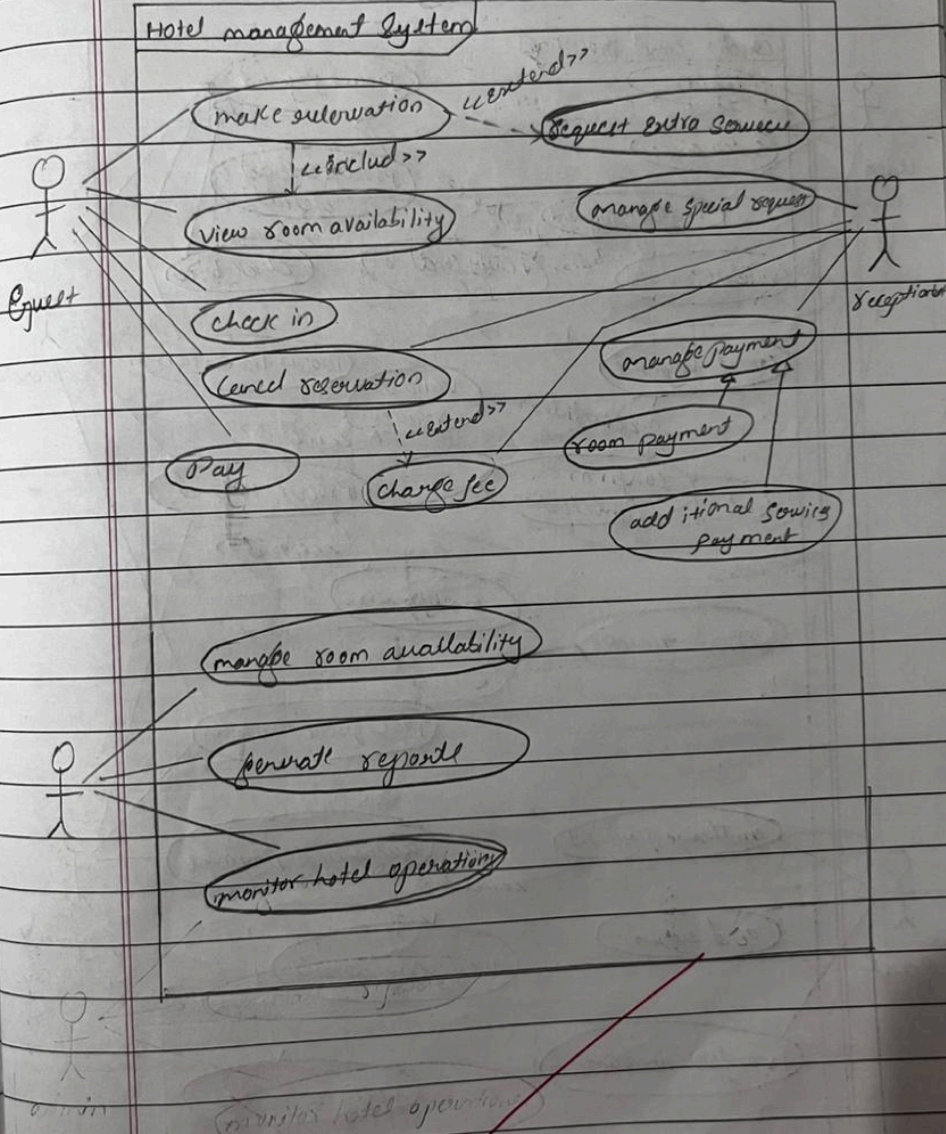 Hotel management System
make reservation
<<extend>>
request extra services
<<includ>>
view room availability
manage special request
Guest
receptionist
check in
manage payment
cancel reservation
<<extend>>
room payment
Pay
charge fee
additional service
payment
manage room availability
generate reports
monitor hotel operations
admin
monitor hotel operations